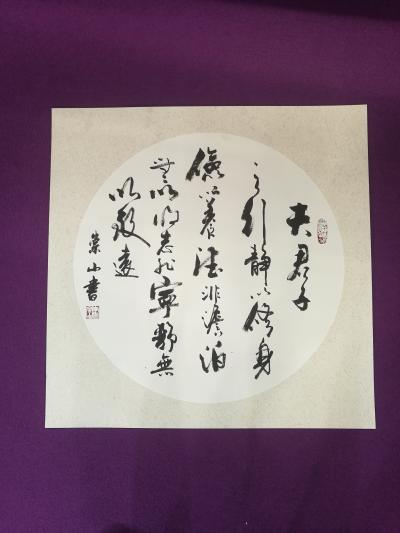 夫君子
之行靜以修身
儉以養德非澹泊
無以明志非寧靜無
以致遠
山書